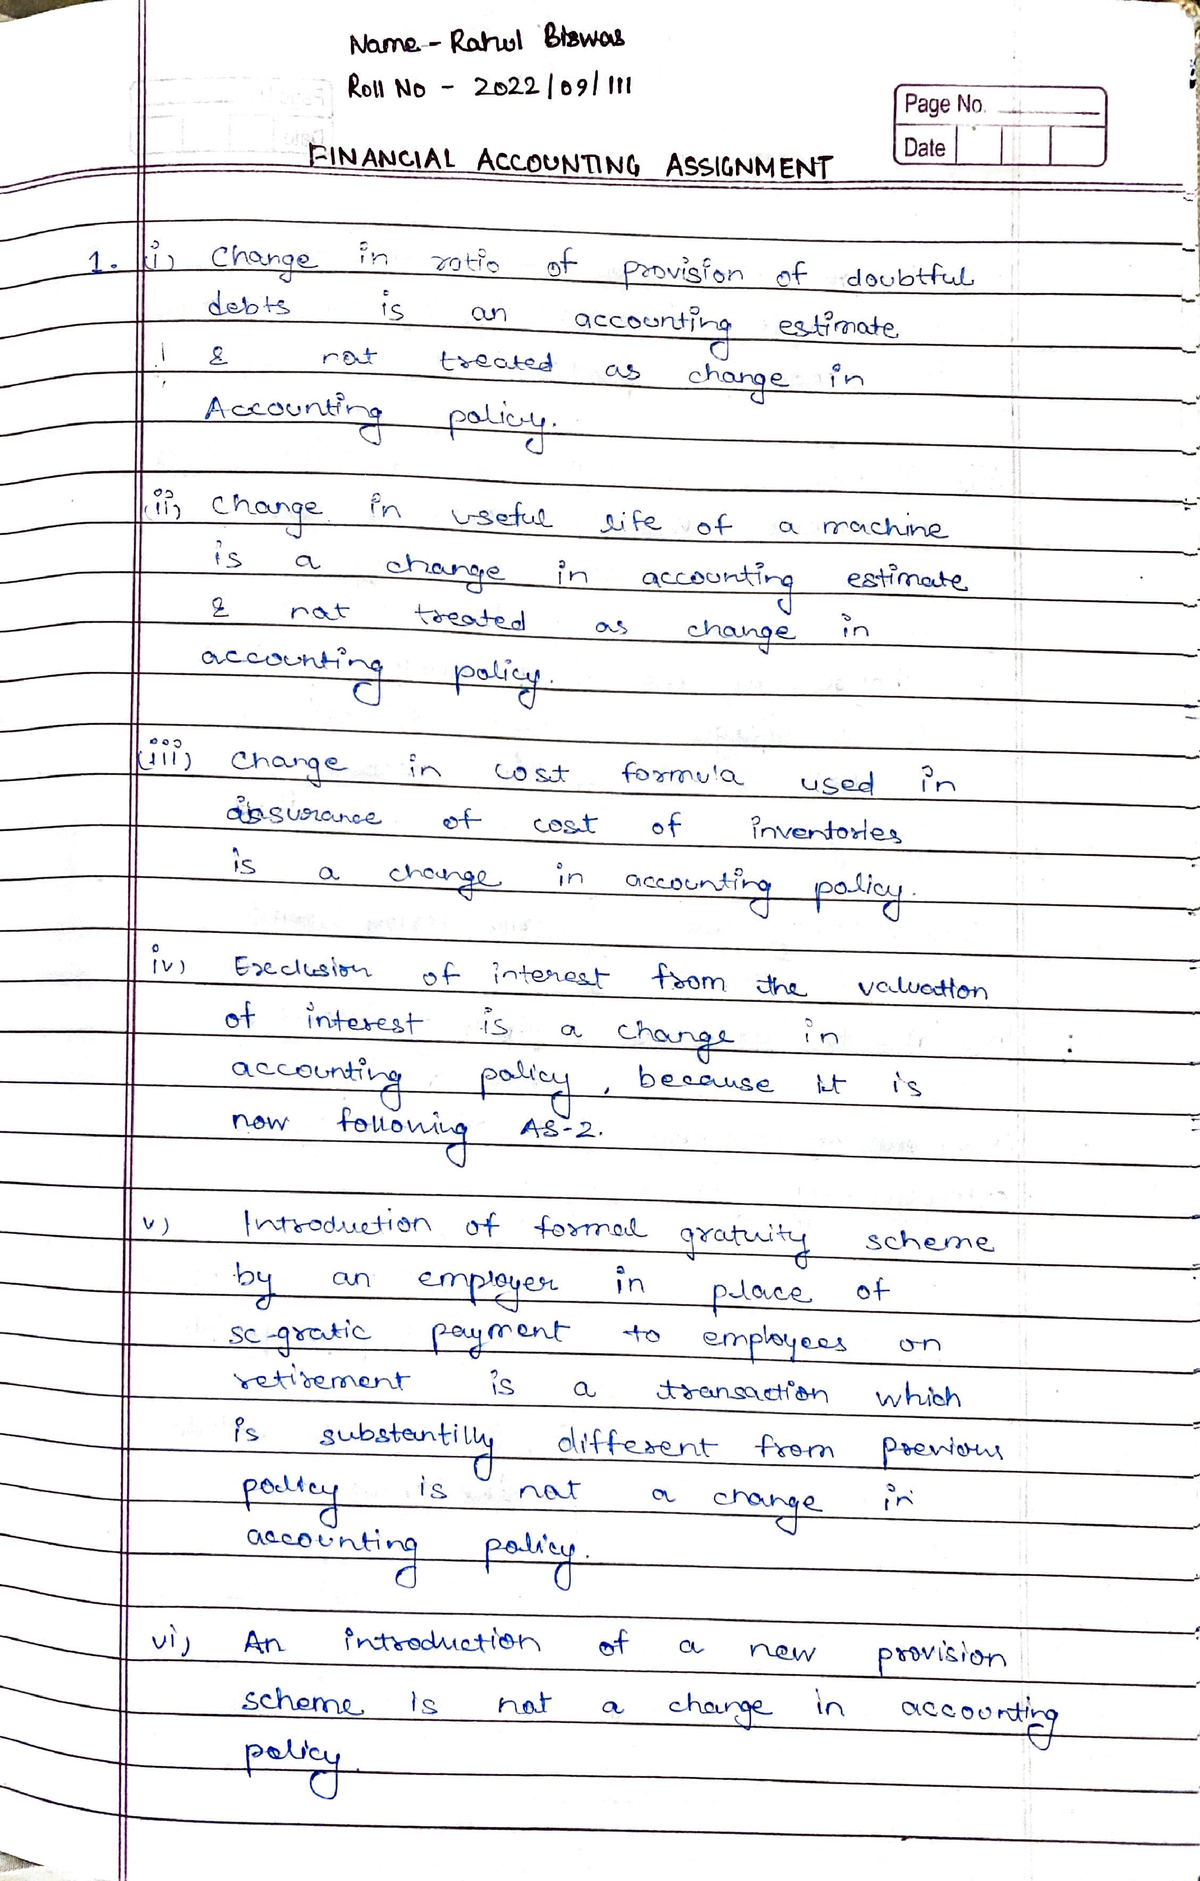 Name - Rahul Biswas
Roll No - 2022/09/111
Page No.
Date
FINANCIAL ACCOUNTING ASSIGNMENT
1. i) Change in ratio of provision of doubtful
debts is an accounting estimate
& not treated as change in
Accounting policy.
ii) Change in useful life of a machine
is a change in accounting estimate
& not treated as change in
accounting policy.
(iii) Change in cost formula used in
of cost of inventories
is a change in accounting policy.
iv) Exclusion of interest from the valuation
of interest is a change in
accounting policy, because it is
now following AS-2.
v) Introduction of formal gratuity scheme
by an employer in place of
payment to employees on
retirement is a transaction which
is substantilly different from previous
policy is not a change in
accounting policy.
vi) An introduction of a new provision
scheme is not a change in accounting
policy.